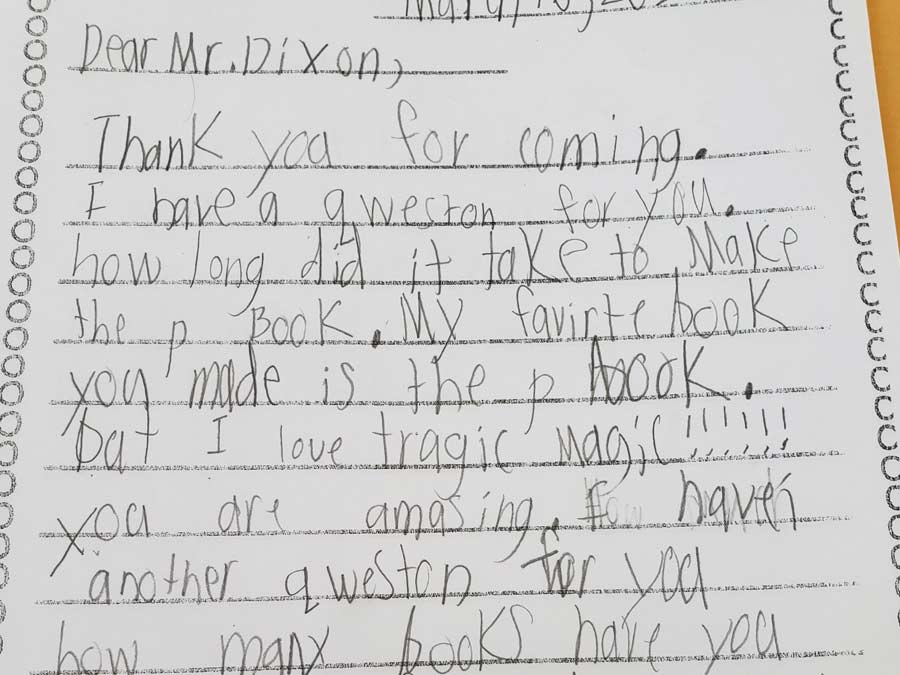 Dear Mr. Dixon,
Thank you for coming.
I have a qweston for you.
how long did it take to Make
the p Book. My favirte book
you made is the p book.
but I love tragic magic!!!!!!
you are amasing. I have
another qweston for you
how many books have you